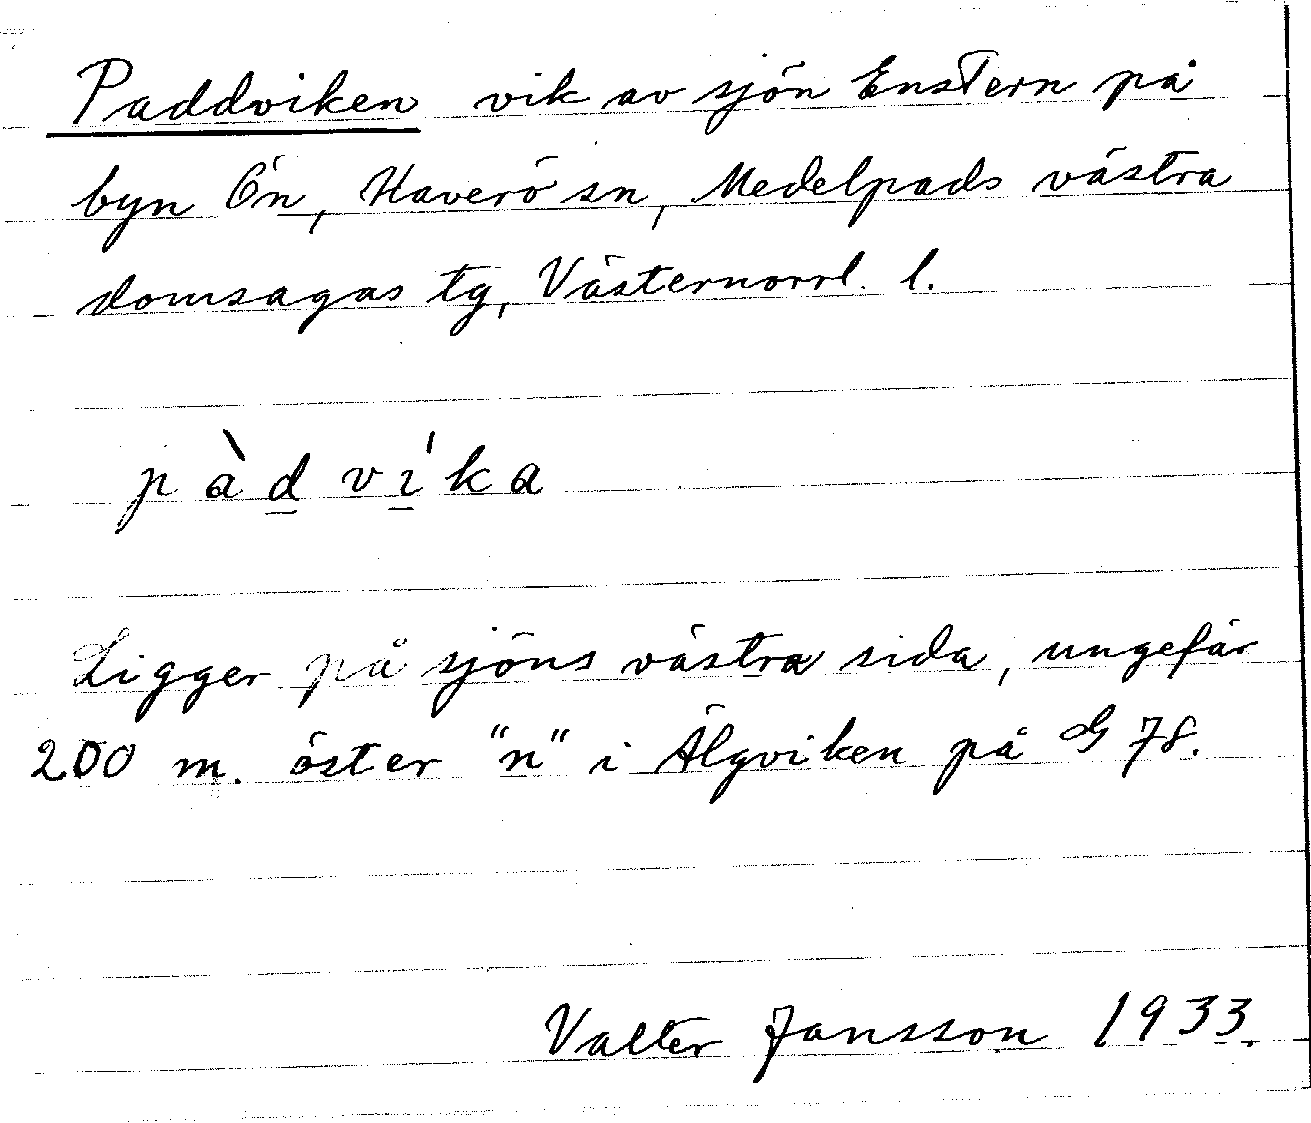 Paddviken vik av sjön Enstern på
byn Ön, Haverö sn, Medelpads västra
domsagas tg, Västernorrl. l.
pàd víka
Ligger på sjöns västra sida, ungefär
200 m. öster "n" i Älgviken på G 78.
Valter Jansson 1933.